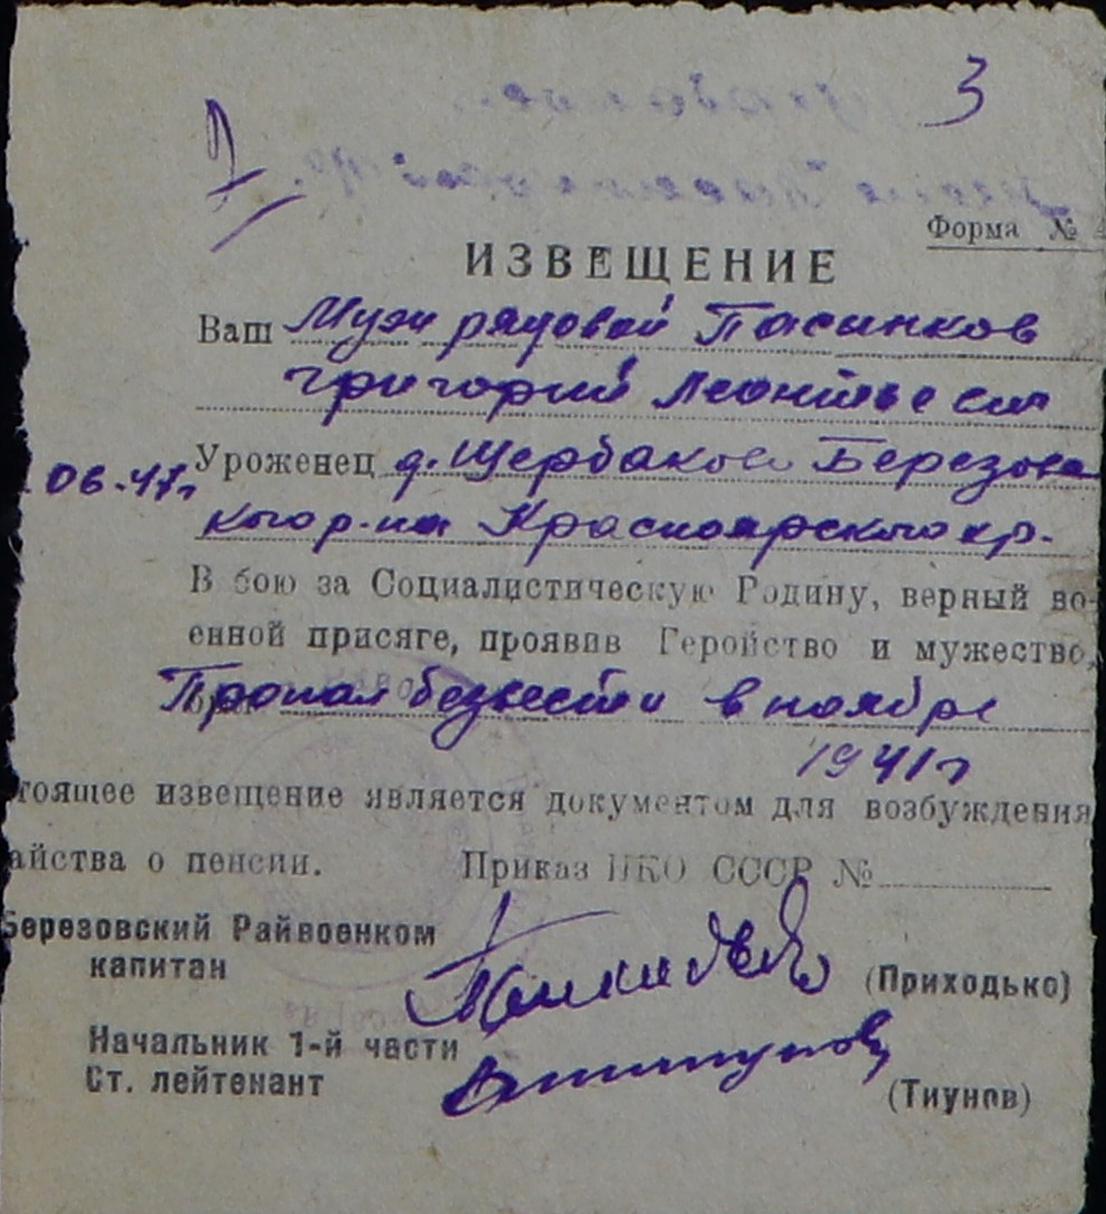 3
Форма №
ИЗВЕЩЕНИЕ
Ваш Муж рядовой Пасынков
Григорий Леонтьевич
Уроженец д. Щербаково Березовс
06.47г
кого р-на Красноярского кр.
В бою за Социалистическую Родину, верный во-
енной присяге, проявив Геройство и мужество,
Пропал безвести в ноябре
1941г
тоящее извещение является документом для возбуждения
айства о пенсии. Приказ НКО СССР №
Березовский Райвоенком
капитан (Приходько)
Начальник 1-й части
Ст. лейтенант (Тиунов)